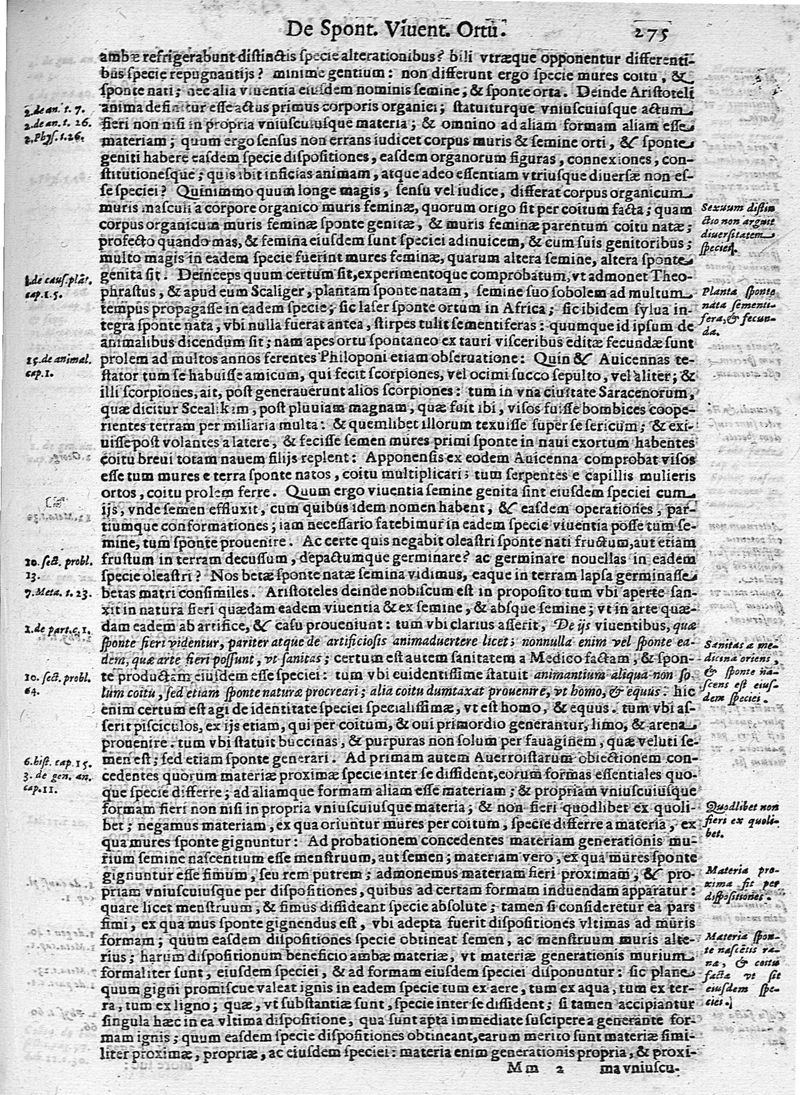 De Spont. Viuent. Ortu. 275
ambæ refrigerabunt distinctis specie alterationibus? bili vtræque opponentur differenti-
bus specie repugnantijs? minime gentium: non differunt ergo specie mures coitu, &
sponte nati; nec alia viuentia eiusdem nominis semine, & sponte orta. Deinde Aristoteli
anima definitur esse actus primus corporis organici; statuiturque vniuscuiusque actum
fieri non nisi in propria vniuscuiusque materia; & omnino ad aliam formam aliam esse
materiam; quum ergo sensus non errans iudicet corpus muris & semine orti, & sponte
geniti habere easdem specie dispositiones, easdem organorum figuras, connexiones, con-
stitutionesque; quis ibit inficias animam, atque adeo essentiam vtriusque diuersæ non es-
se speciei? Quinimmo quum longe magis, sensu vel iudice, differat corpus organicum
muris masculi a corpore organico muris feminæ, quorum origo sit per coitum facta; quam
corpus organicum muris feminæ sponte genitæ, & muris feminæ parentum coitu natæ;
profecto quando mas, & femina eiusdem sunt speciei adinuicem, & cum suis genitoribus;
multo magis in eadem specie fuerint mures feminæ, quarum altera semine, altera sponte
genita sit. Deinceps quum certum sit, experimentoque comprobatum, vt admonet Theo-
phrastus, & apud eum Scaliger, plantam sponte natam, semine suo sobolem ad multum
tempus propagasse in eadem specie; sic laser sponte ortum in Africa; sic ibidem sylua in-
tegra sponte nata, vbi nulla fuerat antea, stirpes tulit sementiferas: quumque id ipsum de
animalibus dicendum sit; nam apes ortu spontaneo ex tauri visceribus editæ fecundæ sunt
prolem ad multos annos ferentes Philoponi etiam obseruatione: Quin & Auicennas te-
stator tum se habuisse amicum, qui fecit scorpiones, vel ocimi succo sepulto, vel aliter; &
illi scorpiones, ait, post generauerunt alios scorpiones: tum in vna ciuitate Saracenorum,
quæ dicitur Scealikim, post pluuiam magnam, quæ fuit ibi, visos fuisse bombices coope-
rientes terram per miliaria multa: & quemlibet illorum texuisse super se sericum; & exi-
uisse post volantes a latere, & fecisse semen mures primi sponte in naui exortum habentes
coitu breui totam nauem filijs replent: Apponensis ex eodem Auicenna comprobat visos
esse tum mures e terra sponte natos, coitu multiplicari; tum serpentes e capillis mulieris
ortos, coitu prolem ferre. Quum ergo viuentia semine genita sint eiusdem speciei cum
ijs, vnde semen effluxit, cum quibus idem nomen habent, & easdem operationes; par-
tiumque conformationes; iam necessario fatebimur in eadem specie viuentia posse tum se-
mine, tum sponte prouenire. Ac certe quis negabit oleastri sponte nati fructum, aut etiam
frustum in terram decussum, depactumque germinare? ac germinare nouellas in eadem
specie oleastri? Nos betæ sponte natæ semina vidimus, eaque in terram lapsa germinasse
betas matri consimiles. Aristoteles deinde nobiscum est in proposito tum vbi aperte san-
xit in natura fieri quædam eadem viuentia & ex semine, & absque semine; vt in arte quæ-
dam eadem ab artifice, & casu proueniunt: tum vbi clarius asserit, De ijs viuentibus, quæ
sponte fieri videntur, pariter atque de artificiosis animaduertere licet; nonnulla enim vel sponte ea-
dem, quæ arte fieri possunt, vt sanitas; certum est autem sanitatem a Medico factam, & spon-
te productam eiusdem esse speciei: tum vbi euidentissime statuit animantium aliqua non so-
lum coitu, sed etiam sponte naturæ procreari; alia coitu dumtaxat prouenire, vt homo, & equus: hic
enim certum est agi de identitate speciei specialissimæ, vt est homo, & equus. tum vbi as-
serit pisciculos, ex ijs etiam, qui per coitum, & oui primordio generantur, limo, & arena
prouenire. tum vbi statuit buccinas, & purpuras non solum per fauaginem, quæ veluti se-
men est; sed etiam sponte generari. Ad primam autem Auerroistarum obiectionem con-
cedentes quorum materiæ proximæ specie inter se dissident, eorum formas essentiales quo-
que specie differre; ad aliamque formam aliam esse materiam; & propriam vniuscuiusque
formam fieri non nisi in propria vniuscuiusque materia; & non fieri quodlibet ex quoli-
bet; negamus materiam, ex qua oriuntur mures per coitum, specie differre a materia, ex
qua mures sponte gignuntur: Ad probationem concedentes materiam generationis mu-
rium semine nascentium esse menstruum, aut semen; materiam vero, ex qua mures sponte
gignuntur esse fimum, seu rem putrem; admonemus materiam fieri proximam, & pro-
priam vniuscuiusque per dispositiones, quibus ad certam formam induendam apparatur:
quare licet menstruum, & fimus dissideant specie absolute; tamen si consideretur ea pars
fimi, ex qua mus sponte gignendus est, vbi adepta fuerit dispositiones vltimas ad muris
formam; quum easdem dispositiones specie obtineat semen, ac menstruum muris alte-
rius; harum dispositionum beneficio ambæ materiæ, vt materiæ generationis murium
formaliter sunt, eiusdem speciei, & ad formam eiusdem speciei disponuntur: sic plane
quum gigni promiscue valeat ignis in eadem specie tum ex aere, tum ex aqua, tum ex ter-
ra, tum ex ligno; quæ, vt substantiæ sunt, specie inter se dissident; si tamen accipiantur
singula hæc in ea vltima dispositione, qua sunt apta immediate suscipere a generante for-
mam ignis; quum easdem specie dispositiones obtineant, earum merito sunt materiæ simi-
liter proximæ, propriæ, ac eiusdem speciei: materia enim generationis propria, & proxi-
M m 2 ma vniuscu-
2. de an. t. 7.
2. de an. t. 26.
2. Phys. t. 26.
de caus. plãt.
cap. 5.
15. de animal.
cap. 1.
10. sect. probl.
13.
7. Meta. t. 23.
1. de part. c. 1.
10. sect. probl.
64.
6. hist. cap. 15.
3. de gen. an.
cap. 11.
Sexuum distin
ctio non arguit
diuersitatem
speciei.
Planta sponte
nata sementi-
fera, & fecun-
da.
Sanitas a me-
dicina oriens,
& sponte na-
scens est eius-
dem speciei.
Quodlibet non
fieri ex quoli-
bet.
Materia pro-
xima fit per
dispositiones.
Materia spon-
te nascẽtis ra-
na, & coitu
facta vt sit
eiusdem spe-
ciei.